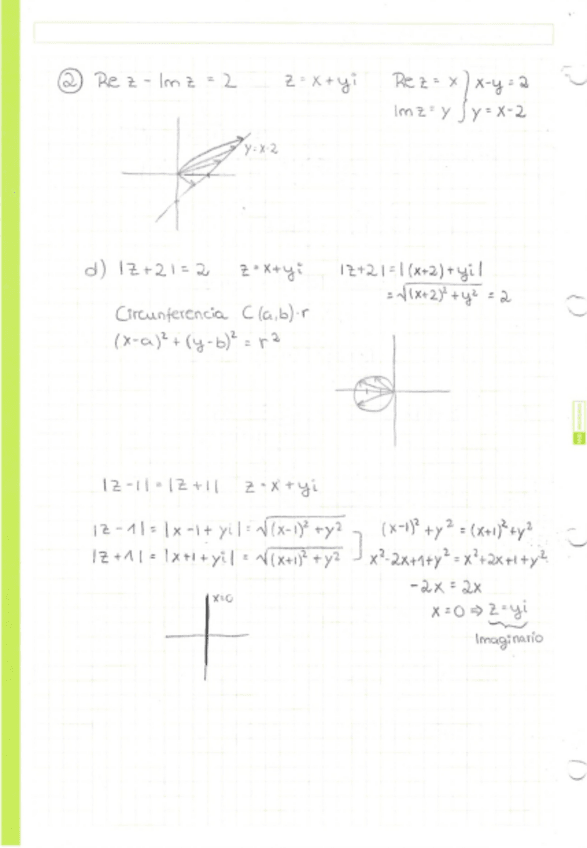 ② Re z - Im z = 2 z = x + yi Re z = x } x-y = 2
Im z = y } y = x-2
y=x-2
d) |z+2| = 2 z = x+yi |z+2| = |(x+2)+yi|
= √(x+2)² + y² = 2
Circunferencia C(a,b)·r
(x-a)² + (y-b)² = r²
|z-1| = |z+1| z = x+yi
|z-1| = |x-1+yi| = √(x-1)² + y² (x-1)² + y² = (x+1)² + y²
|z+1| = |x+1+yi| = √(x+1)² + y² x²-2x+1+y² = x²+2x+1+y²
-2x = 2x
x=0 x=0 ⇒ z=yi
Imaginario